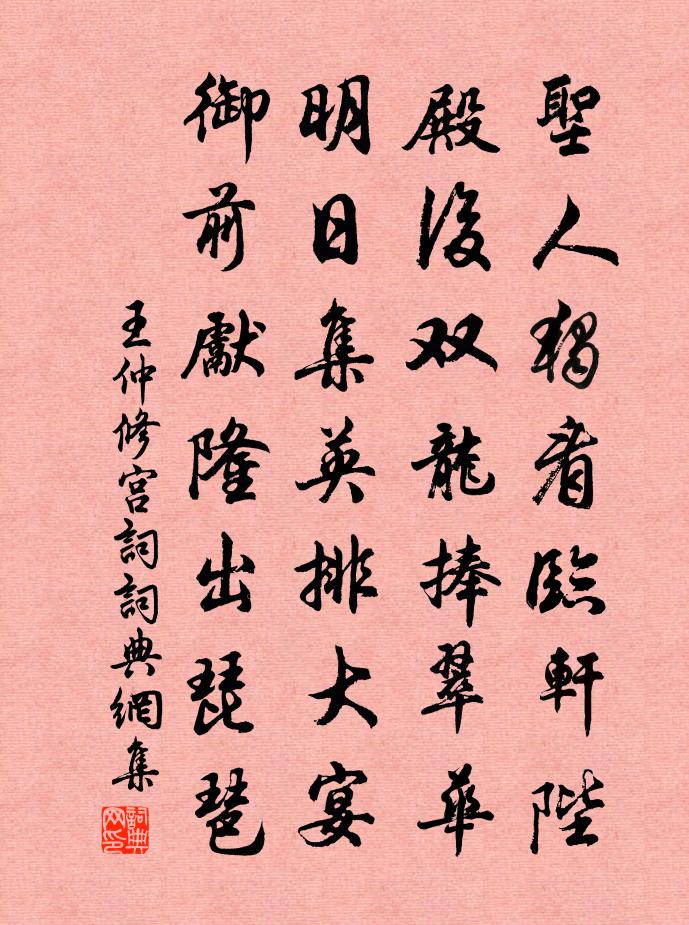 聖人獨看臨軒陛
殿後双龍捧翠華
明日集英排大宴
御前獻隆出琵琶
王仲修宫詞詞典網集
詞典网印